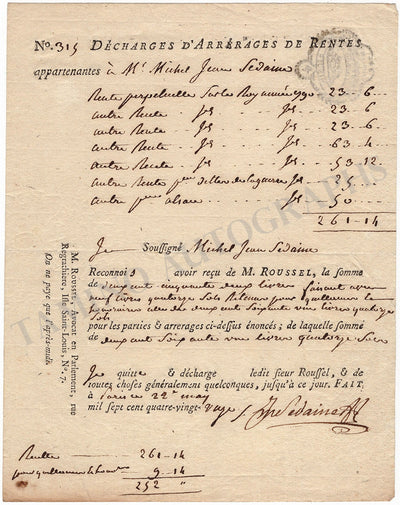 No. 315 DÉCHARGES D'ARRÉRAGES DE RENTES
appartenantes à Mr Michel Jean Sedaine
Rente perpetuelle sur le Roy année 1790 23 .. 6
autre Rente Js Js 23 .. 6
autre Rente Js Js 23 .. 6
autre Rente Js Js 63 .. 4
autre Recete Js Js 53 . 12
autre Rente pour dettes de la guerre Js 25
autre pour alsace 50
261 - 14
Je Soussigné Michel Jean Sedaine
Reconnois avoir reçu de M. ROUSSEL, la somme
de deux cent cinquante deux livres faisant avec
neuf livres quatorze Sols
honoraires celle de deux cent soixante une livres quatorze
Sols
pour les parties & arrerages ci-dessus énoncés; de laquelle somme
de deux cent Soixante une livres quatorze Sols
Je quitte & décharge ledit sieur Roussel, & de
toutes choses généralement quelconques, jusqu'à ce jour. FAIT,
à Paris ce 22e may
mil sept cent quatre-vingt-onze Jn Sedaine
Recette 261 - 14
9 - 14
252 "
M. ROUSSEL, Avocat en Parlement, rue
Regrattiere, Isle Saint-Louis, No. 7.
On ne paye que l'après-midi
TAMINO AUTOGRAPHS